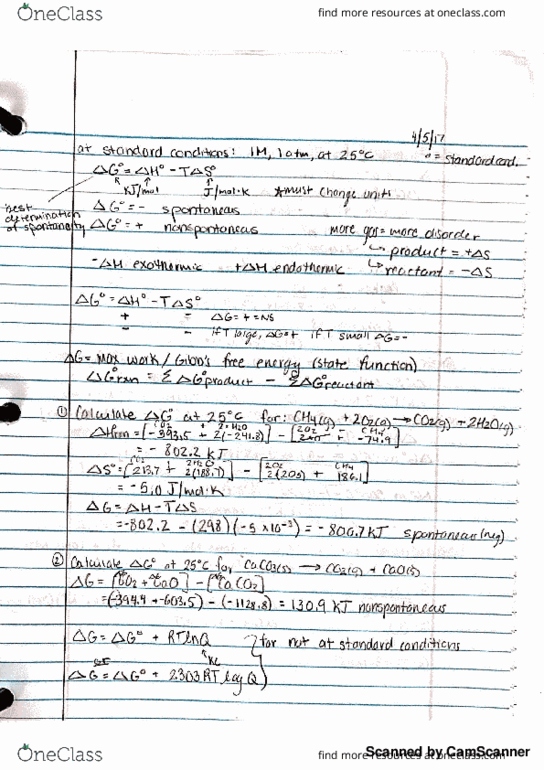 OneClass
find more resources at oneclass.com
4/5/17
at standard conditions: 1M, 1atm, at 25°C
° = standard cond.
ΔG° = ΔH° - TΔS°
KJ/mol J/mol·K *must change units
best determination of spontaneity
ΔG° = - spontaneous
ΔG° = + nonspontaneous
more gas = more disorder
↳ product = +ΔS
↳ reactant = -ΔS
-ΔH exothermic +ΔH endothermic
ΔG° = ΔH° - TΔS°
+ - ΔG = + = NS
- - if T large, ΔG=+ if T small ΔG=-
ΔG = max work / Gibb's free energy (state function)
ΔG°rxn = ΣΔG°product - ΣΔG°reactant
① Calculate ΔG° at 25°C for: CH4(g) + 2O2(g) → CO2(g) + 2H2O(g)
CO2 + 2H2O 2O2 CH4
ΔHrxn = [-393.5 + 2(-241.8)] - [ + -74.9]
= -802.2 KJ
CO2 2H2O 2O2 CH4
ΔS° = [213.7 + 2(188.7)] - [2(205) + 186.1]
= -5.0 J/mol·K
ΔG = ΔH - TΔS
= -802.2 - (298)(-5 x10⁻³) = -800.7 KJ spontaneous (neg)
② Calculate ΔG° at 25°C for CaCO3(s) → CO2(g) + CaO(s)
ΔG = [CO2 + CaO] - [CaCO2]
= (-394.4 + -603.5) - (-1128.8) = 130.9 KJ nonspontaneous
ΔG = ΔG° + RTlnQ
for not at standard conditions
or
ΔG = ΔG° + 2.303 RT log Q
OneClass
find more resources at oneclass.com
Scanned by CamScanner